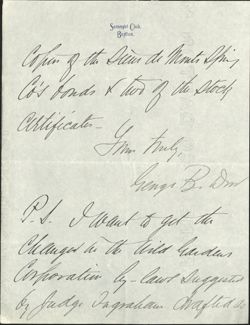 Somerset Club,
Boston.
Copies of the Sieur de Monts Spring
Co's bonds & two of the Stock
Certificates—
Yours truly,
George B. Dorr
P.S. I want to get the
Changes in the Wild Gardens
Corporation by-laws Suggested
by Judge Ingraham drafted